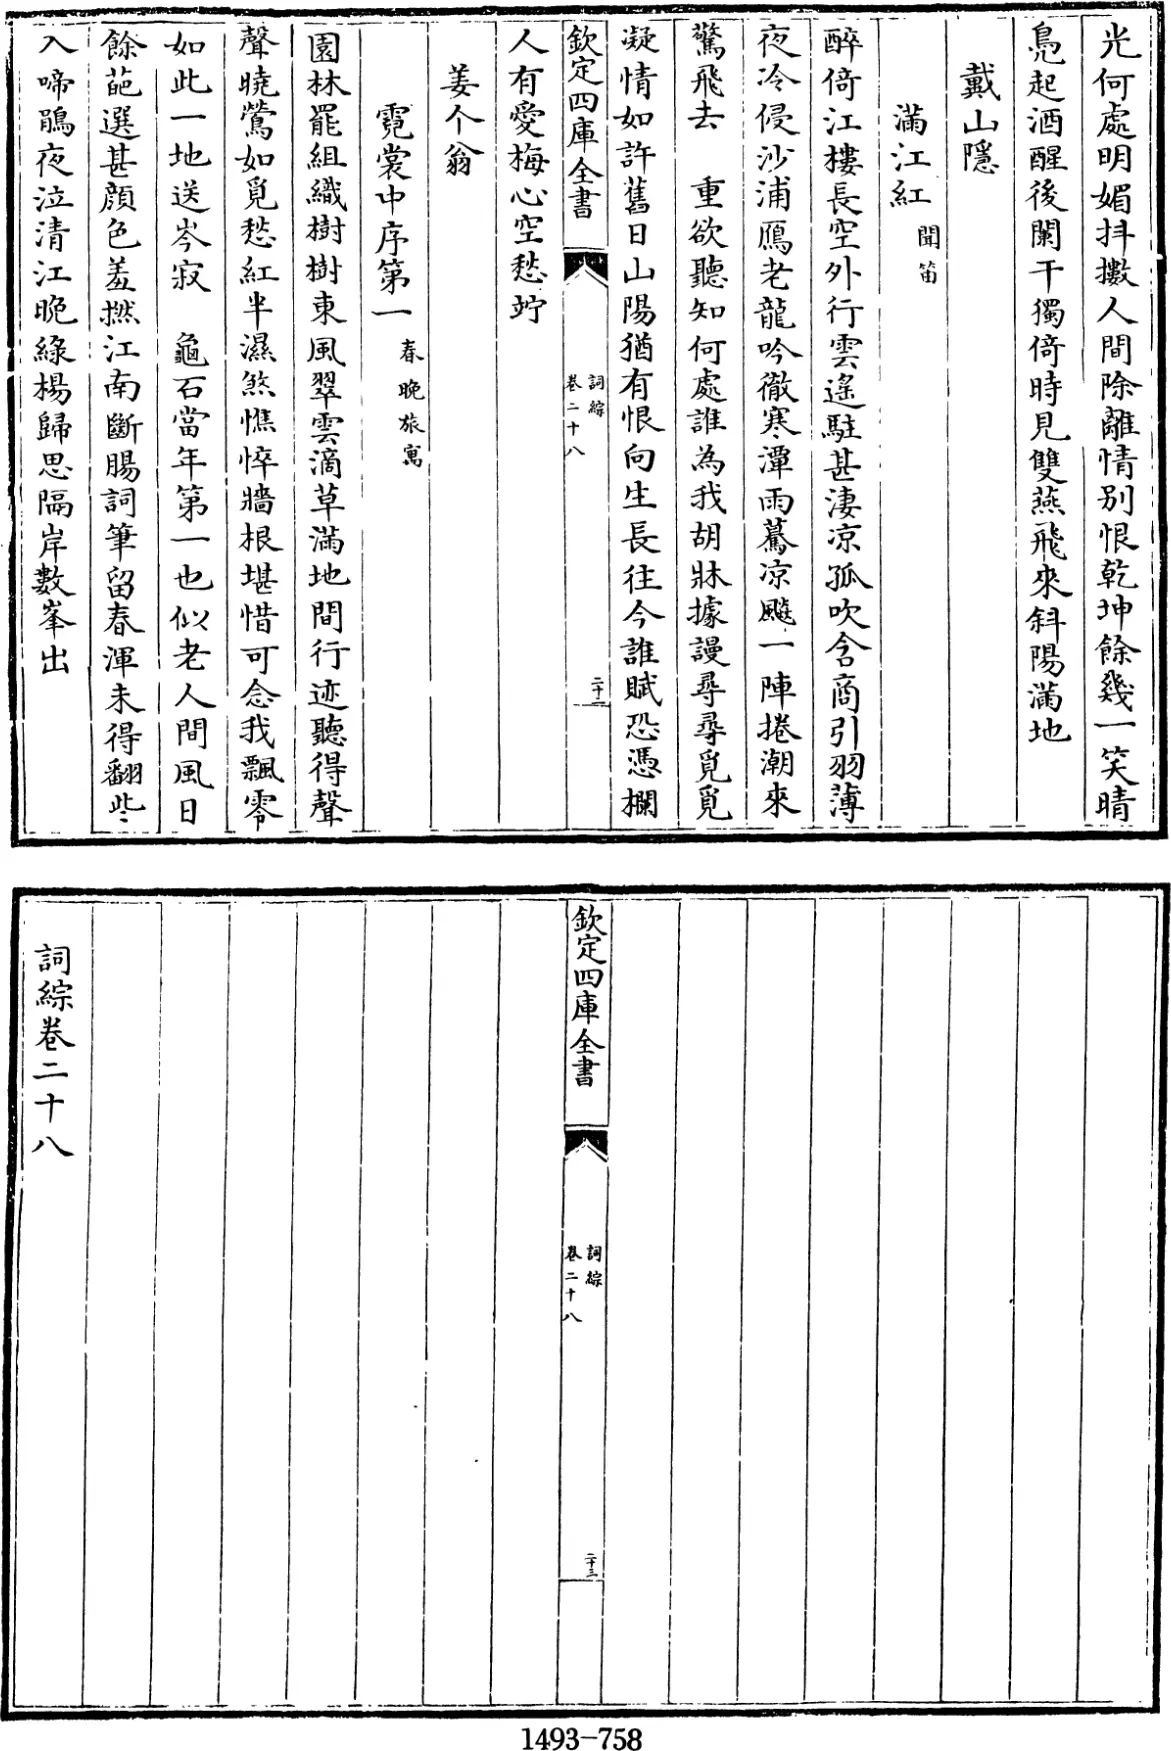 光何處明媚抖擻人間除離情别恨乾坤餘幾一笑晴
鳬起酒醒後闌干獨倚時見雙燕飛來斜陽滿地
戴山隱
滿江紅 聞笛
醉倚江樓長空外行雲遙駐甚淒凉孤吹含商引羽薄
夜冷侵沙浦鴈老龍吟徹寒潭雨驀凉飈一陣捲潮來
驚飛去 重欲聽知何處誰為我胡牀據謾尋尋覓覓
凝情如許舊日山陽猶有恨向生長往今誰賦恐憑欄
欽定四庫全書
詞綜
卷二十八
二十二
人有愛梅心空愁竚
姜个翁
霓裳中序第一 春晚旅寓
園林罷組織樹樹東風翠雲滴草滿地間行迹聽得聲
聲曉鶯如覓愁紅半濕煞憔悴牆根堪惜可念我飄零
如此一地送岑寂 龜石當年第一也似老人間風日
餘葩選甚顔色羞撚江南斷腸詞筆留春渾未得翻些
入啼鵑夜泣清江晚綠楊歸思隔岸數峯出
欽定四庫全書
詞綜
卷二十八
二十三
詞綜卷二十八
1493-758